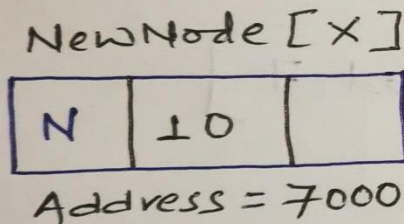 NewNode [X]
N 10
Address = 7000